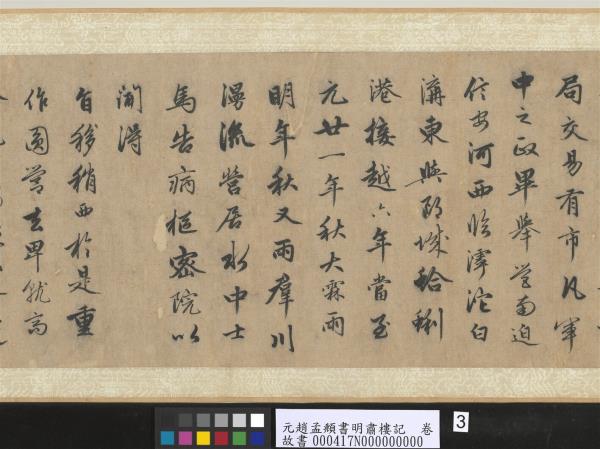 局交易有市凡軍
中之政畢舉營南迫
信安河西臨滹沱白
溝東與郎城
港接越六年當至
元廿一年秋大霖雨
明年秋又雨群川
漫流營居水中士
馬告病樞密院以
聞得
旨移稍西於是重
作園營去卑就高
元趙孟頫書明肅樓記 卷
故書000417N000000000
3